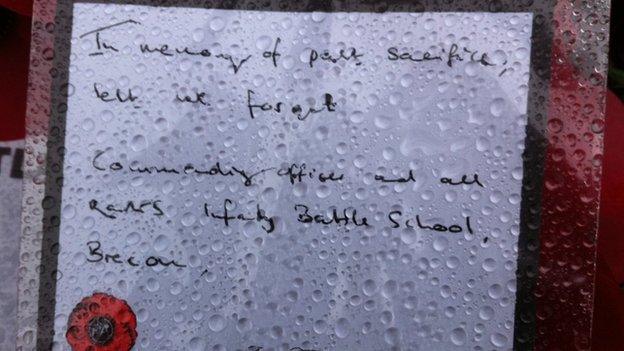 In memory of past sacrifice,
lest we forget
Commanding officer and all
ranks Infantry Battle School,
Brecon